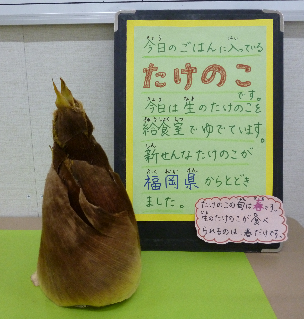 今日のごはんに入っている
たけのこ
です。
今日は生のたけのこを
給食室でゆでています。
新せんなたけのこが
福岡県からとどき
ました。
たけのこの旬は春です。
生のたけのこが食べ
られるのは、春だけです。